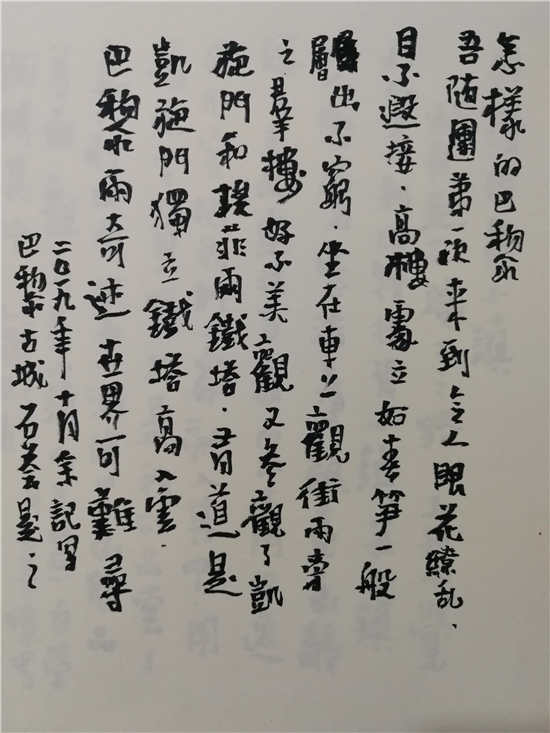 怎樣的巴黎
吾随團第一次来到令人眼花缭乱、
目不遐接、高樓矗立如春笋一般
層出不窮、坐在車上觀街兩旁
之羣樓好不美觀又参觀了凱
旋門和埃菲爾鐵塔、有道是
凱旋門獨立鐵塔高入雲、
巴黎兩大奇迹世界可難尋
二0一九年十月余記写
巴黎古城